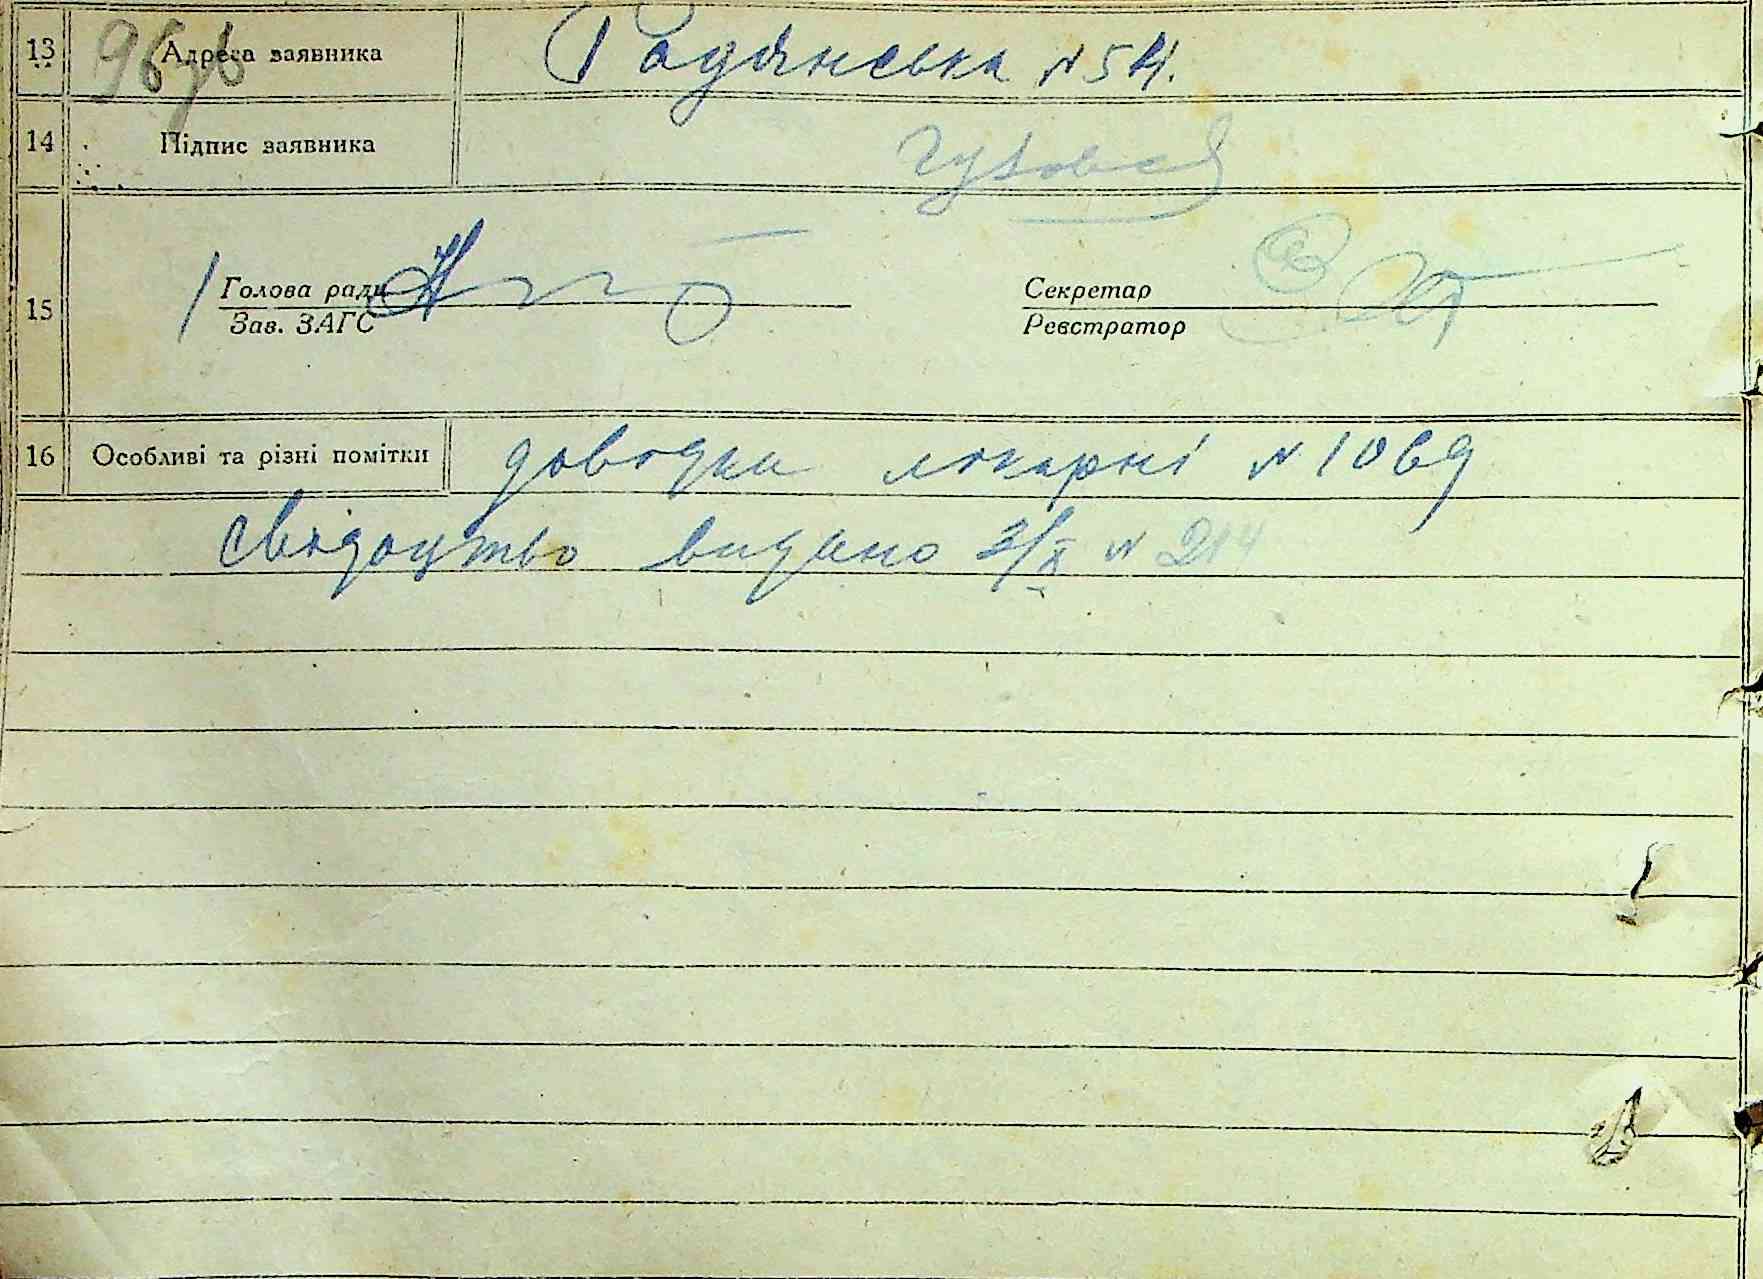 13 Адреса заявника Радянська N 54.
14 Підпис заявника
15 Голова ради Секретар
Зав. ЗАГС Реєстратор
16 Особливі та різні помітки довідка лікарні N 1069
Свідоцтво видано 3/X N 214